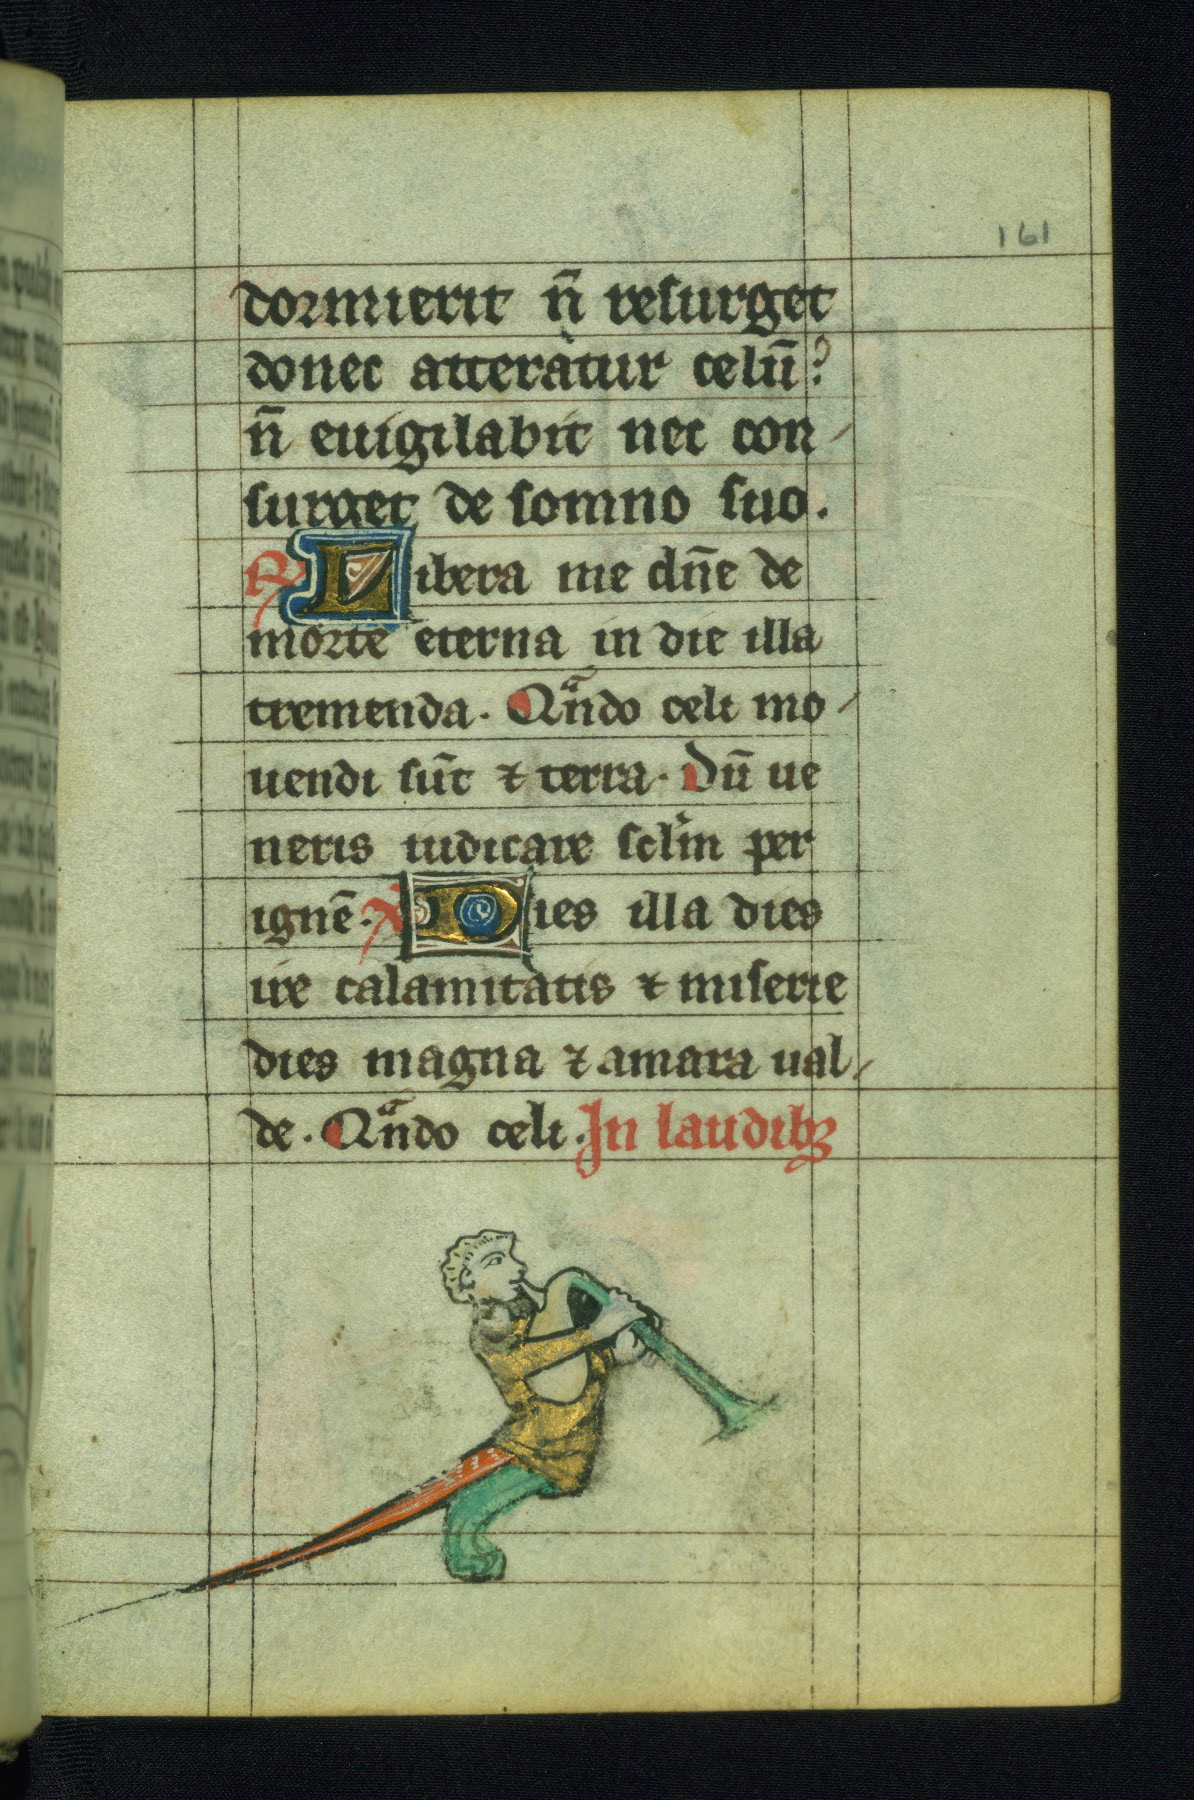 161
dormierit n̄ resurget
donec atteratur celū?
n̄ euigilabit nec con
surget de somno suo.
R Libera me dn̄e de
morte eterna in die illa
tremenda. Qᵃndo celi mo
uendi sūt ⁊ terra. Dū ue
neris iudicare sclm̄ per
ignē. V Dies illa dies
ire calamitatis ⁊ miserie
dies magna ⁊ amara ual
de. Qᵃndo celi. In laudibꝫ